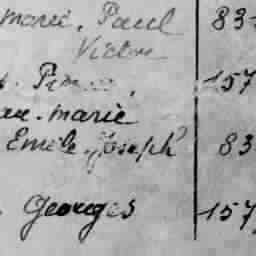 marie, Paul 83
Victor
157
marie
Emile Joseph 83
Georges 157